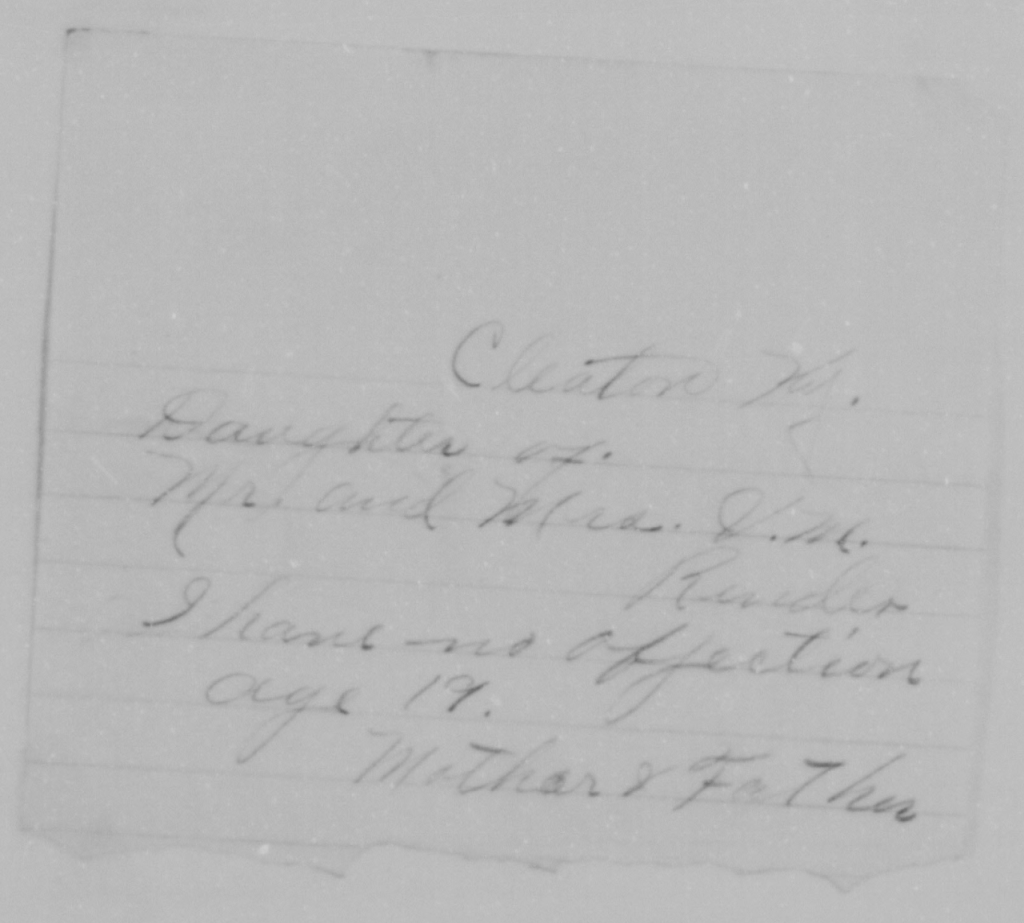 Cleaton Ky.
Daughter of.
Mr. and Mrs. V.M.
Render
I have no offjection
age 19.
Mothar & Father